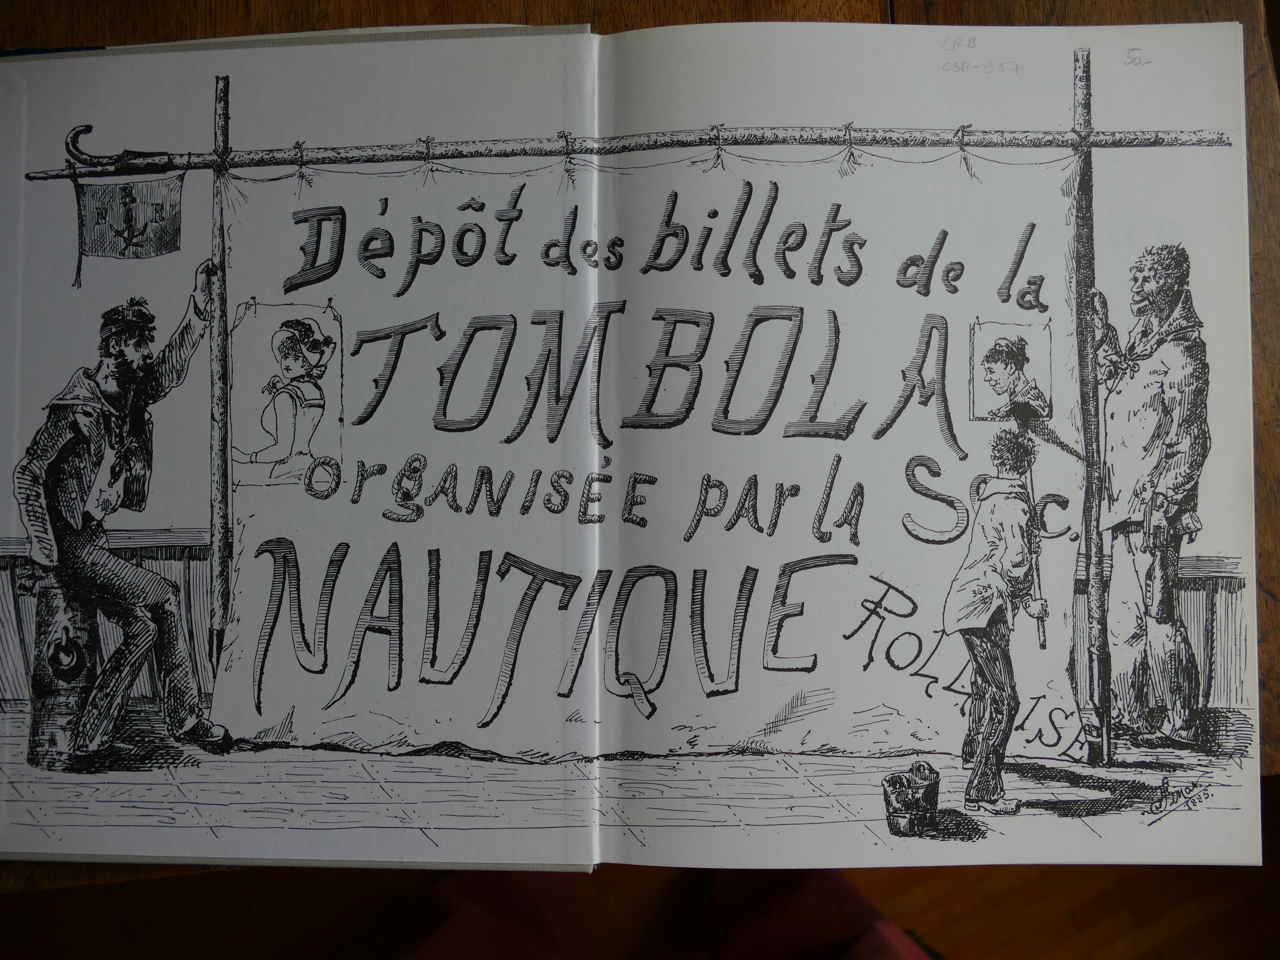 LRB
50.-
N R
Dépôt des billets de la
TOMBOLA
organisée par la Soc.
NAUTIQUE ROLLOISE
369
1885.